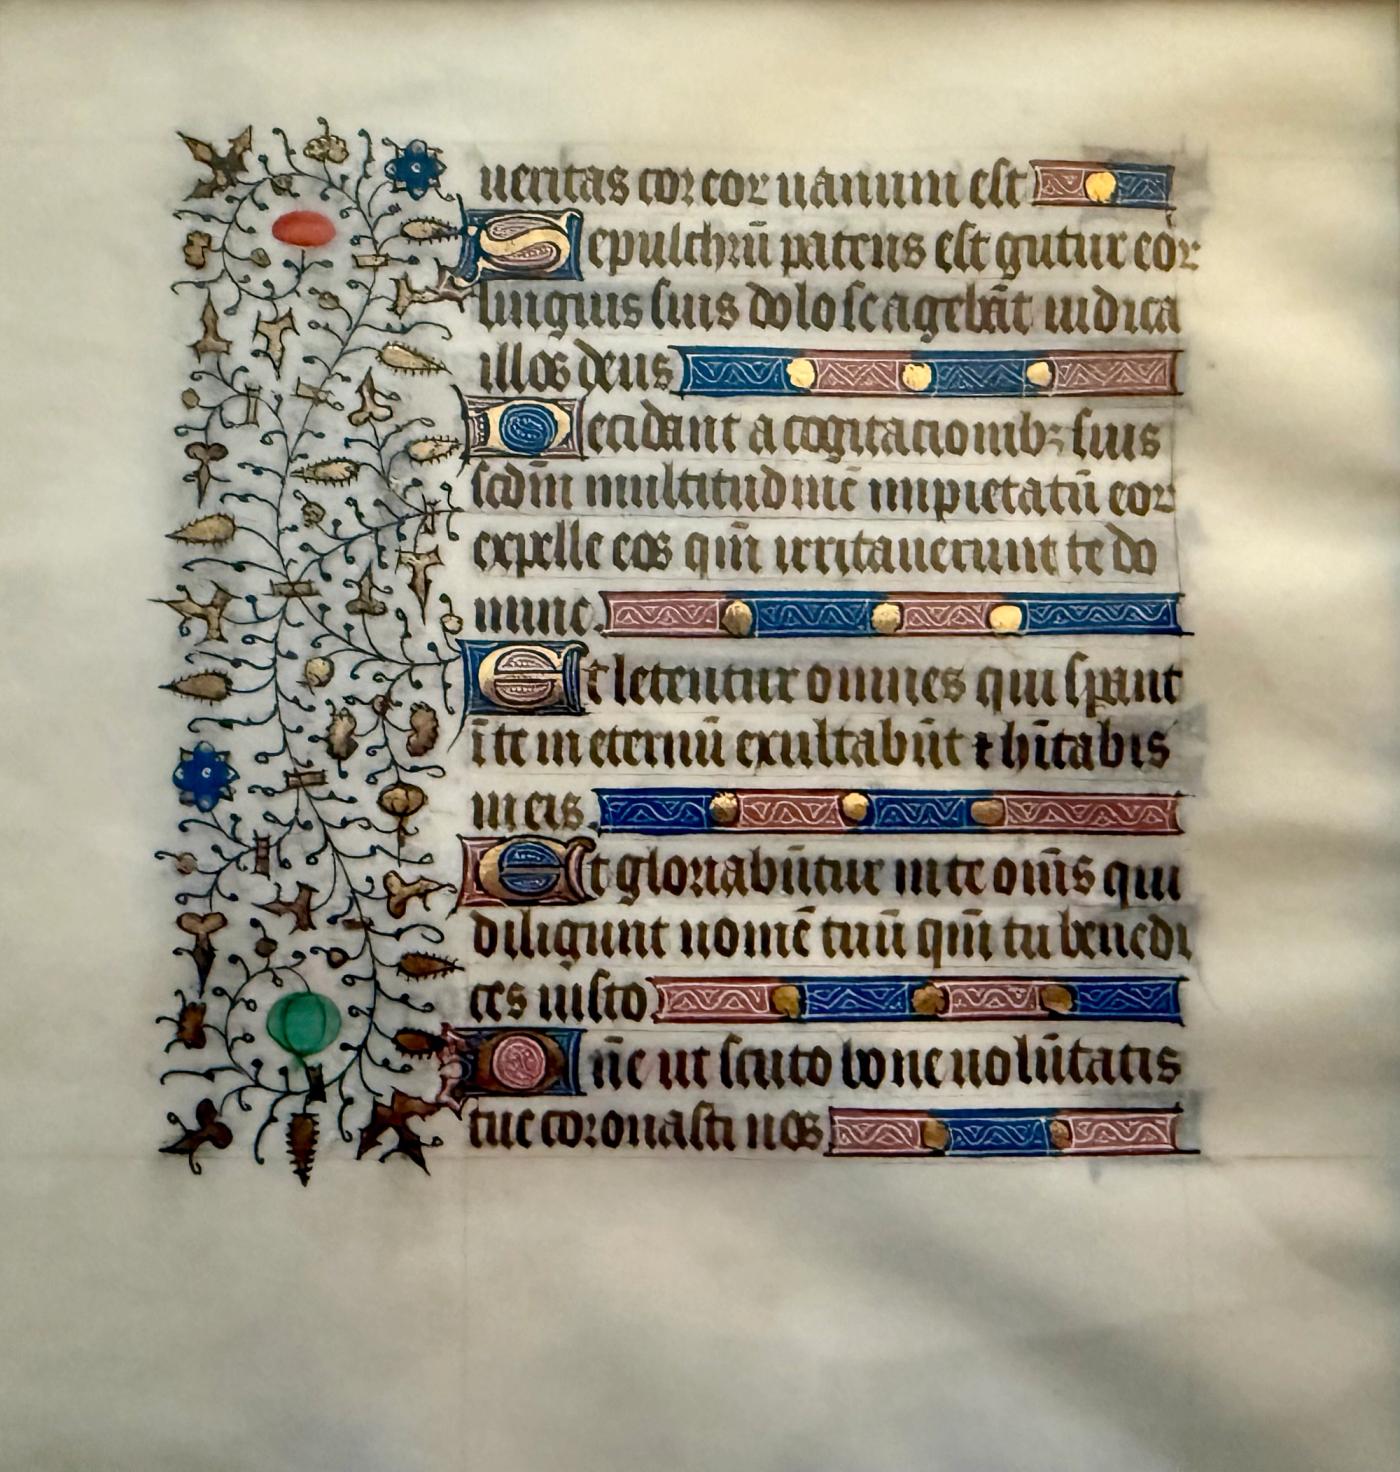 ueritas cor eor uanum est
Sepulchrū patens est gutur eor
linguis suis dolose agebāt iudica
illos deus
Decidant a cogitationib; suis
scdm̄ multitudinē impietatū eor
expelle eos qm̄ irritauerunt te do
mine.
Et letentur omnes qui sperant
ī te in eternū exultabūt ⁊ hītabis
in eis.
Et gloriabūtur in te om̄s qui
diligunt nomē tuū qm̄ tu benedi
ces iusto
Dn̄e ut scuto bone uolūtatis
tue coronasti nos